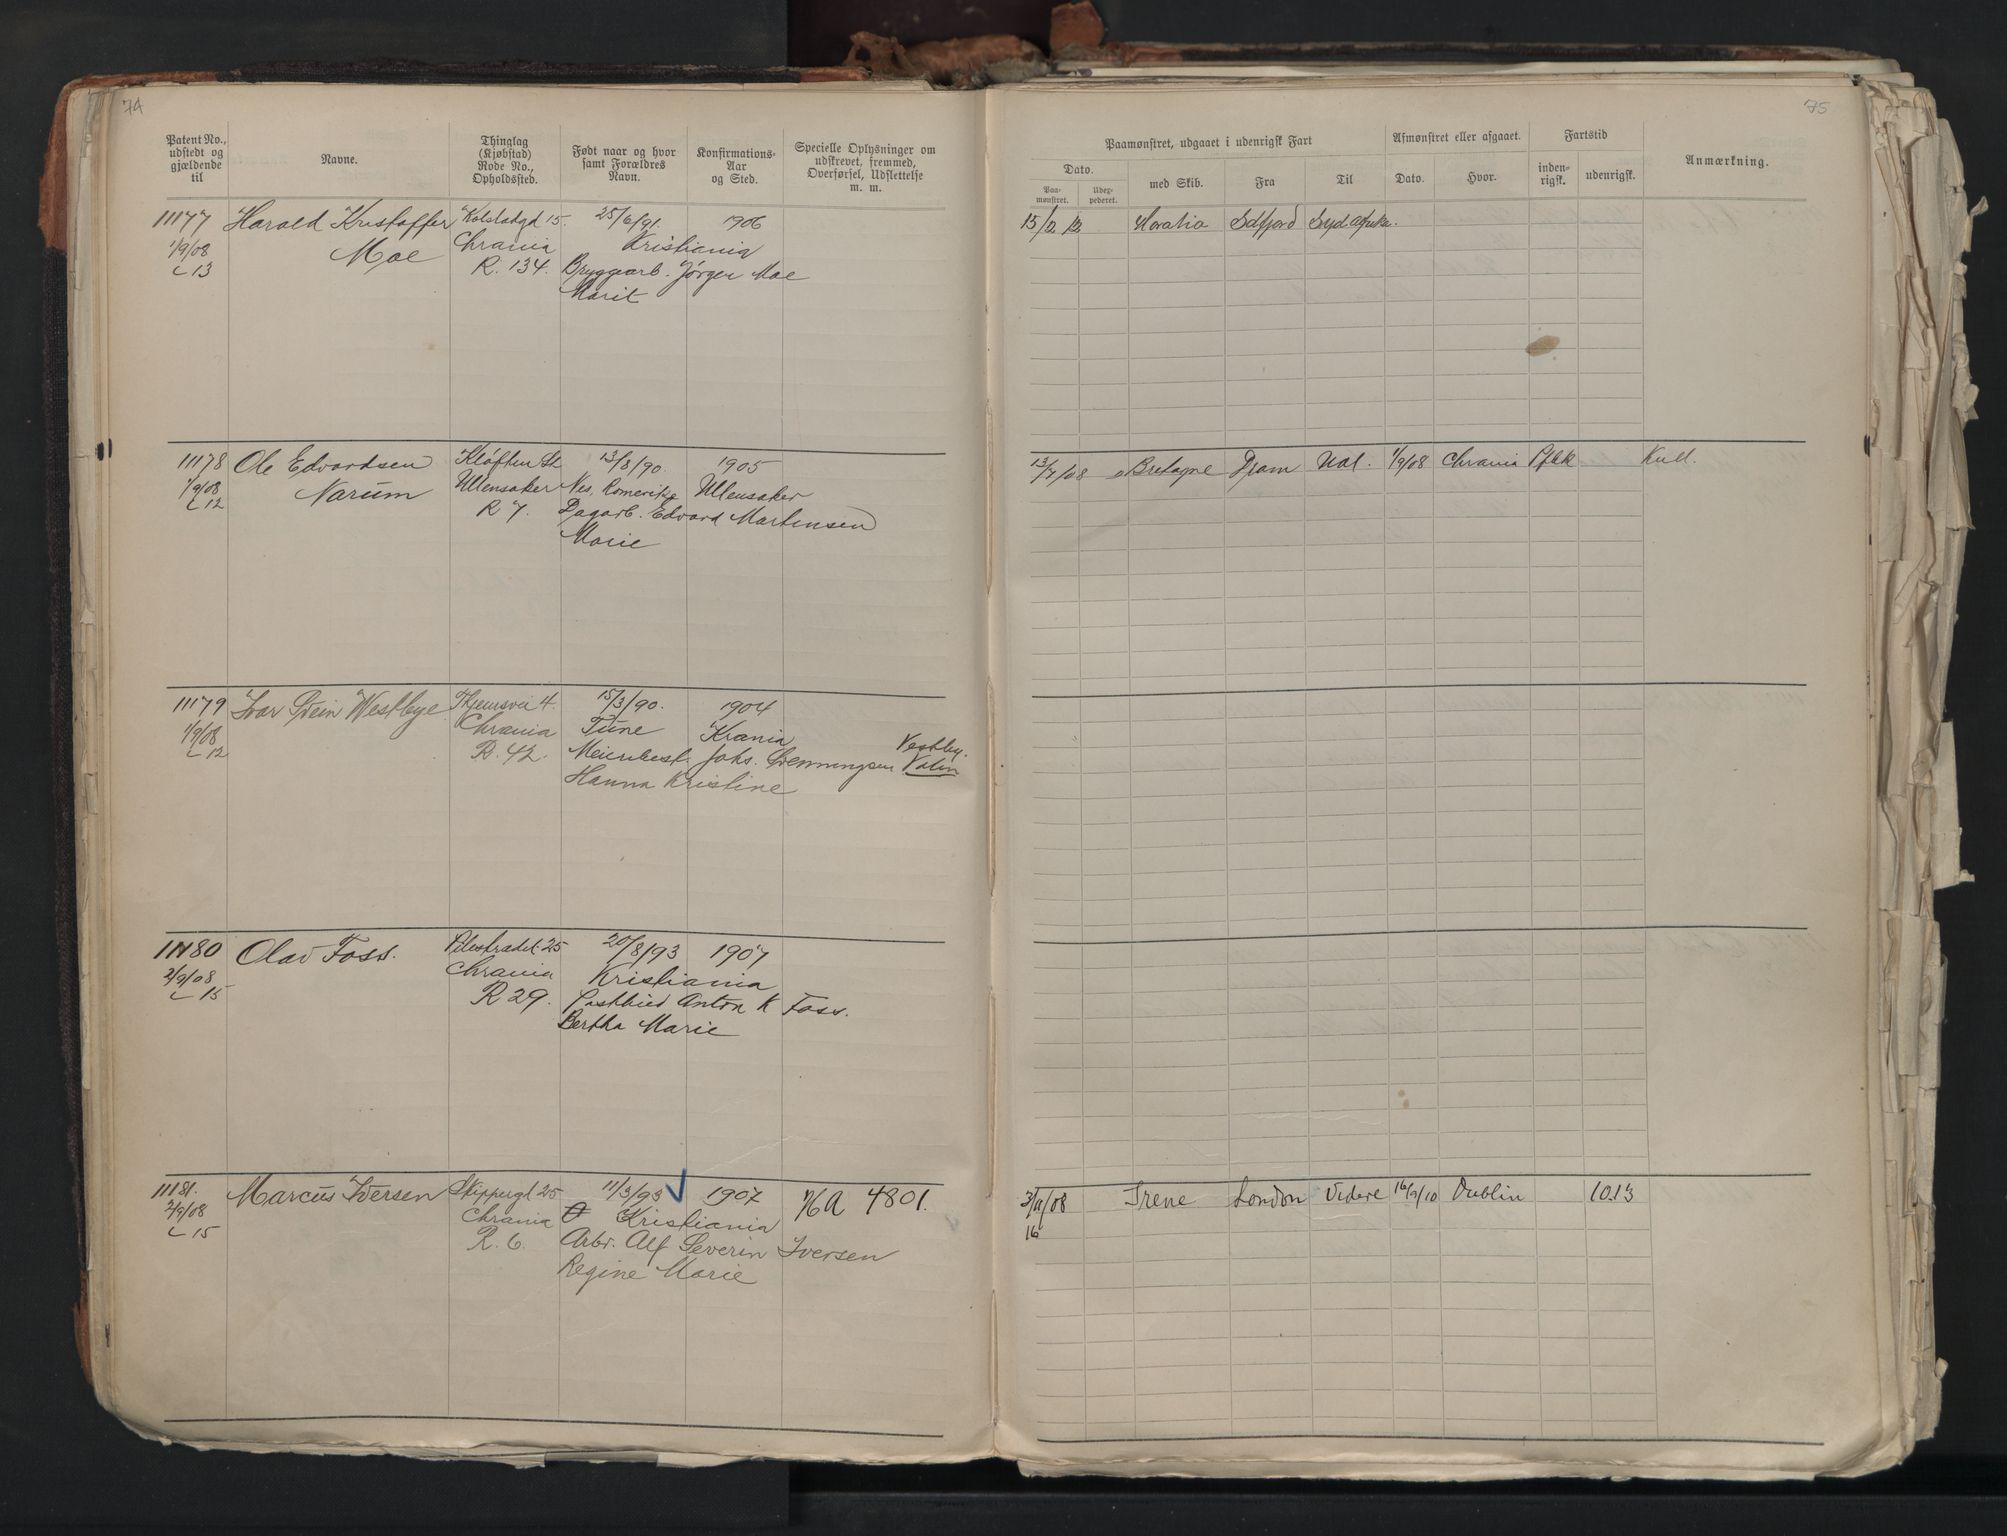 74
Patent No., udstedt og gjældende til
Navne.
Thinglag (Kjøbstad) Rode No., Opholdssted.
Født naar og hvor samt Forældres Navn.
Konfirmations-Aar og Sted.
Specielle Oplysninger om udskrevet, fremmed, Overførsel, Udslettelse m. m.
11177 Harald Kristoffer 25/6/91. 1906
1/9/08 Moe Chrania Kristiania
L 13 R. 134. Bryggearb. Jørgen Moe
Marit
11178 Ole Edvardsen Kløften St 13/8/90. 1905
1/9/08 Narum Ullensaker Nes, Romerike Ullensaker
L 12 R 7. Dagarb. Edvard Martinsen
Marie
11179 Ivar Svein Westbye 4. 15/3/90. 1904
1/9/08 Chrania Tune Krania
L 12 R. 42. Meieribest. Johs. Svenningsen Vestby.
Hanna Kristine
11180 Olav Foss. Pilestrædet 25 20/8/93 1907
2/9/08 Chrania Kristiania
L 15 R 29. Postbud Anton K Foss.
Bertha Marie
11181. Marcus Iversen Skippergt 25 11/3/93 1907 4801.
2/9/08 Chrania Kristiania
L 15 R. 6. Arbr. Alf Severin Iversen
Regine Marie
75
Paamønstret, udgaaet i udenrigsk Fart
Afmønstret eller afgaaet.
Fartstid
Anmærkning.
Dato.
Paa-mønstret.
Udex-pederet.
med Skib.
Fra
Til
Dato.
Hvor.
inden-rigsk.
udenrigsk.
15/2 12 Horatio Idfjord Syd
13/7/08 Bretagne Dram Ual. 1/9/08 Chrania Kull.
3/11/08 Irene London Videre 16/9/10 Dublin 10.13
16